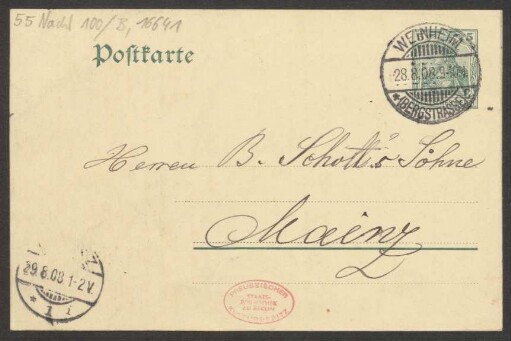 55 Nachl 100/B, 15641
Postkarte
5
WEINHEIM
28.8.08.9-10
*(BERGSTRASSE)*
Herren B. Schott's Söhne
Mainz
29.8.08.1-2V.
* 1
PREUSSISCHER
STAATS-
BIBLIOTHEK
ZU BERLIN
KULTURBESITZ